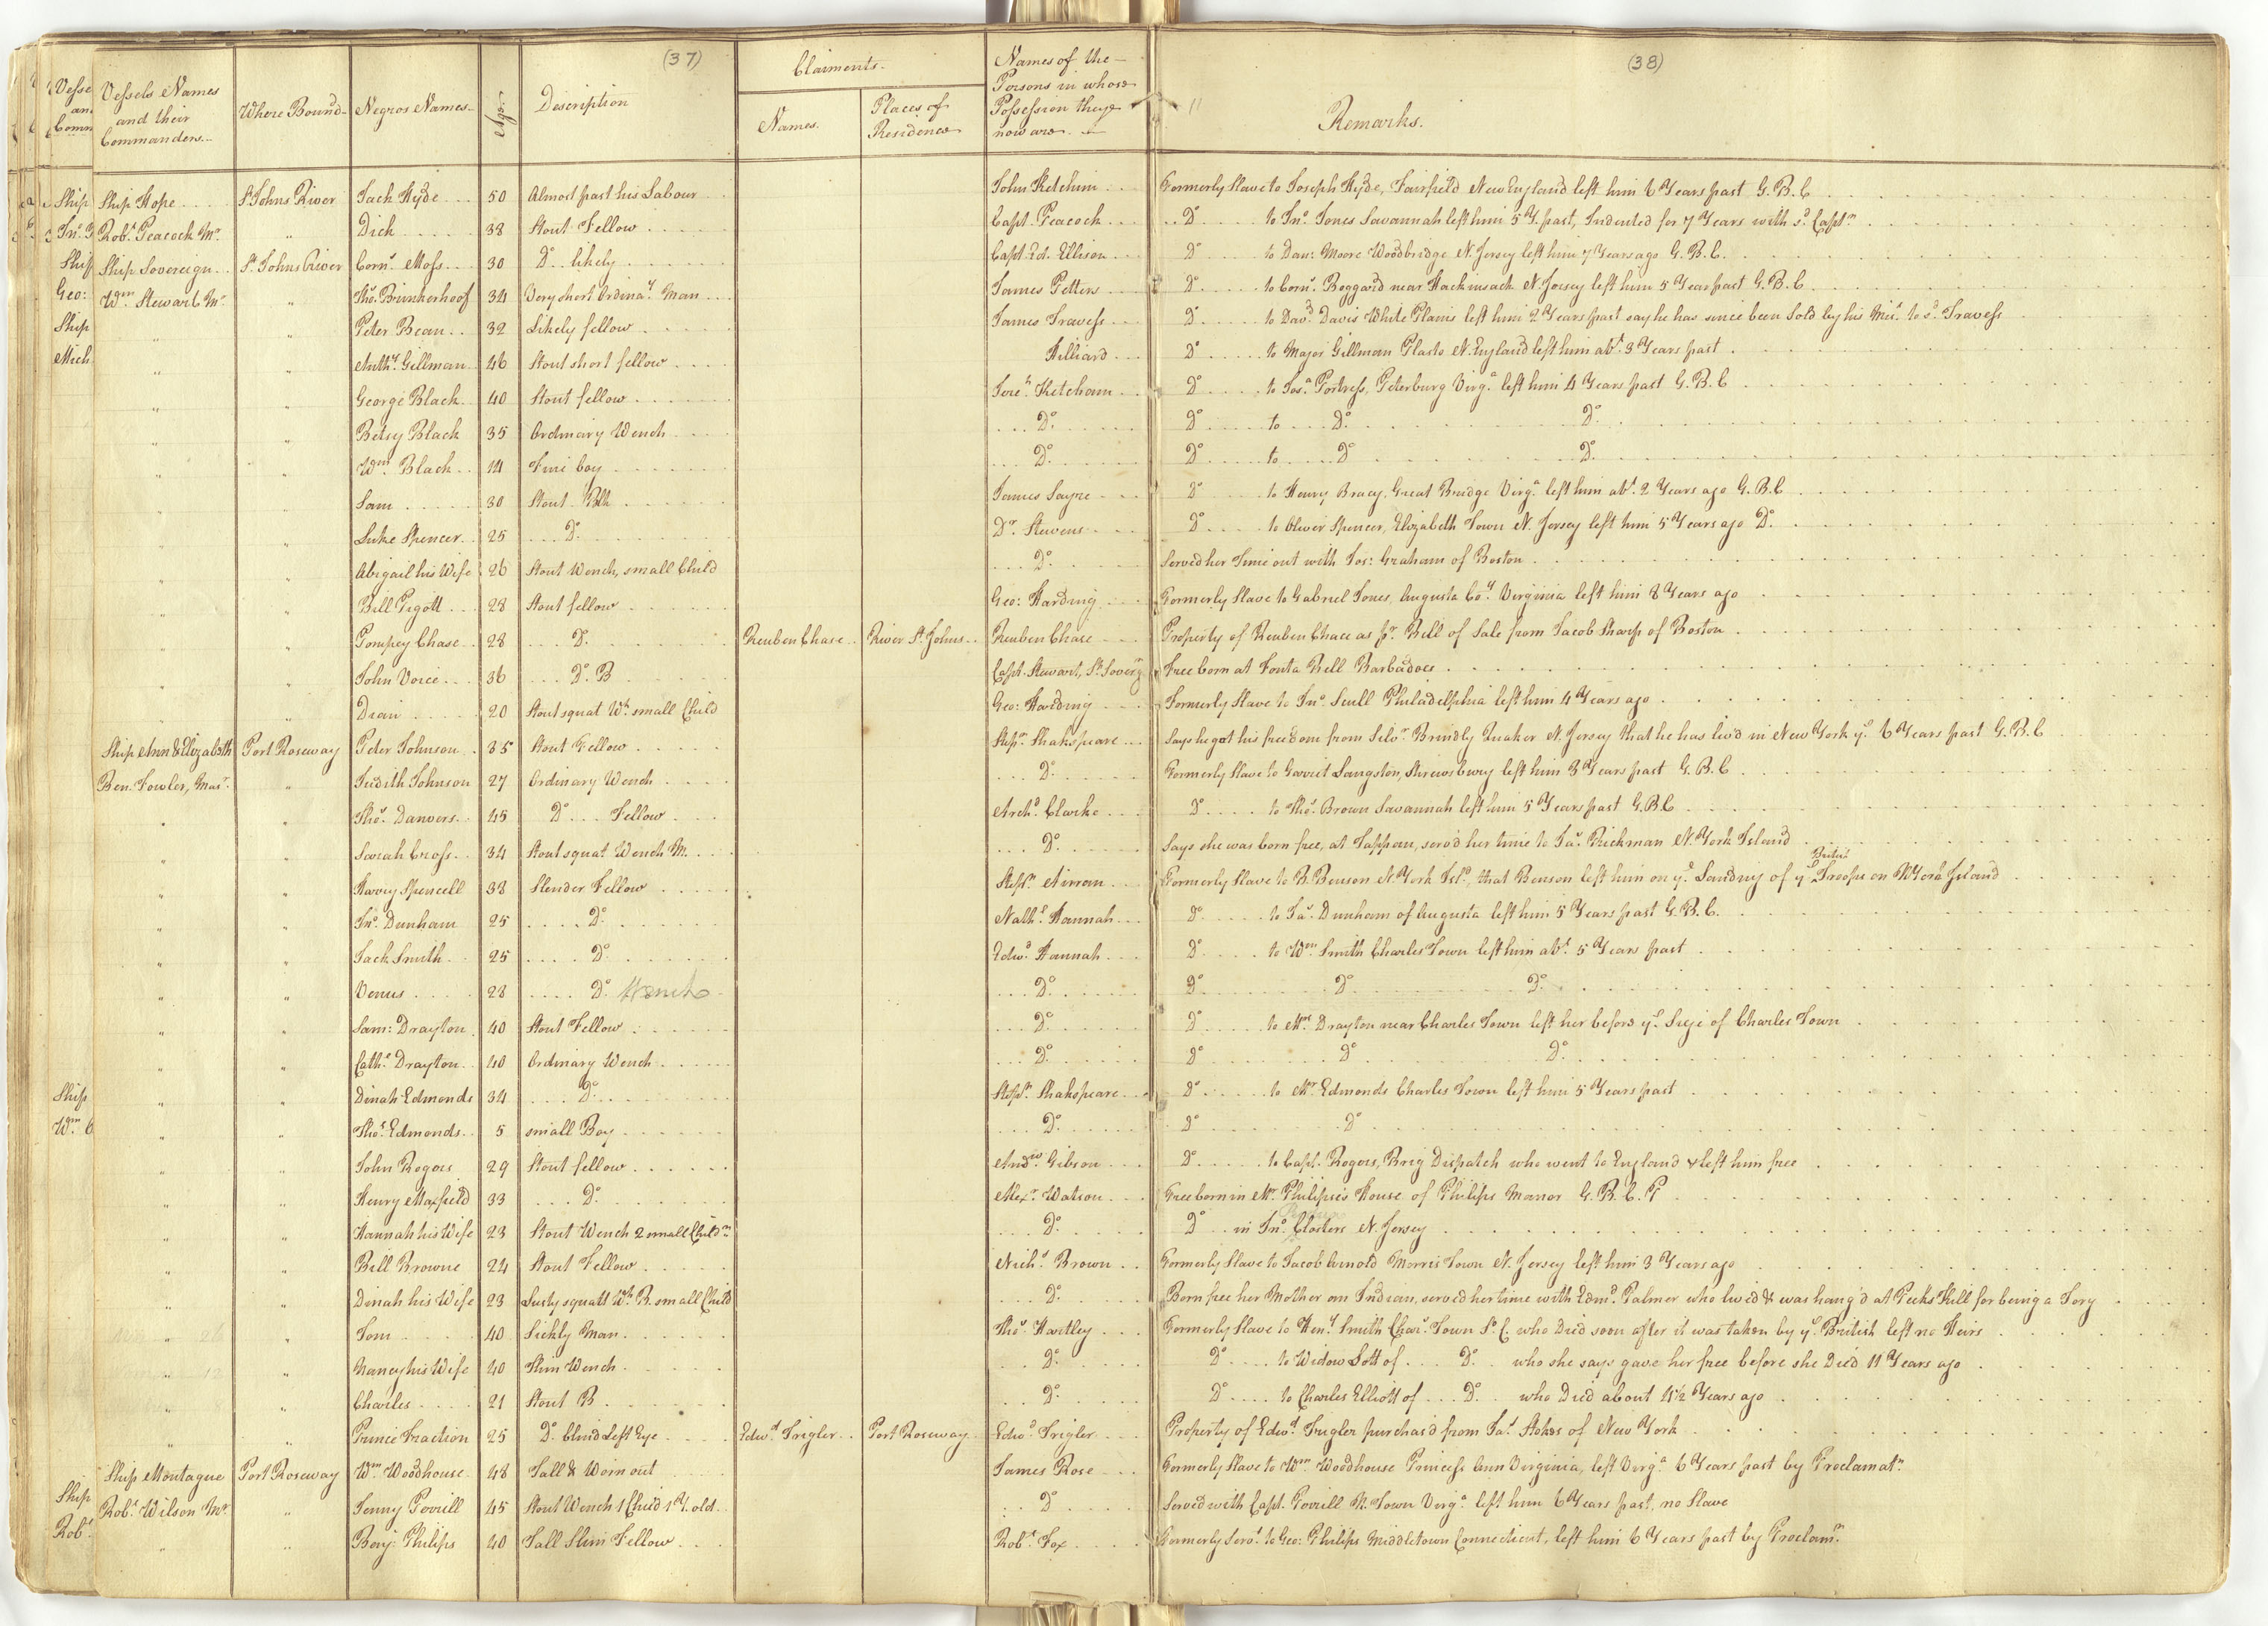 (37)
(38)
Vessels Names and their Commanders
Where Bound
Negros Names
Ages
Description
Claiments.
Names.
Places of Residence
Names of the Persons in whose Possession they now are.
Remarks.
Ship Hope St Johns River Jack Hyde 50 Almost past his Labour John Ketchim Formerly Slave to Joseph Hyde, Fairfield New England left him 6 Years past G.B.C
Robt. Peacock Mr. " Dick 38 Stout Fellow Capt. Peacock Do. to Jno. Jones Savannah left him 5 Y. past, Indented for 7 Years with sd. Captn.
Ship Sovereign St. Johns River Corns. Moss 30 Do. likely Capt. Ed. Ellison Do. to Dan: Moore Woodbridge N. Jersey left him 7 Years ago G.B.C.
Wm. Stewart Mr. " Thos. Brinkerhoof 34 Very short Ordinay. Man James Petters Do. to Corns. Boggard near Hackinsack N. Jersey left him 5 Years past G.B.C
" " Peter Bean 32 Likely fellow James Travess Do. to Davd. Davis White Plains left him 2 Years past say he has since been Sold by his Mis. to sd. Travess
" " Anthy. Gillman 46 Stout short fellow Hilliard Do. to Major Gillman Plasto N. England left him abt. 3 Years past
" " George Black 40 Stout fellow Jere. Ketcham Do. to Josa. Fortress, Peterburg Virga. left him 4 Years past G.B.C
" " Betsy Black 35 Ordinary Wench Do. Do. to Do. Do.
" " Wm. Black 14 Fine boy Do. Do. to Do. Do.
" " Sam 30 Stout Blk James Sayre Do. to Henry Bracy, Great Bridge Virga. left him abt. 2 Years ago G.B.C
" " Luke Spencer 25 Do. Dr. Stevens Do. to Oliver Spencer, Elizabeth Town N. Jersey left him 5 Years ago Do.
" " Abigail his Wife 26 Stout Wench, small Child Do. Served her Time out with Jos: Graham of Boston
" " Bill Pigott 28 Stout fellow Geo: Harding Formerly Slave to Gabriel Jones, Augusta Coy. Virginia left him 8 Years ago
" " Pompey Chase 28 Do. Reuben Chase River St. Johns Reuben Chase Property of Reuben Chace as pr. Bill of Sale from Jacob Sharp of Boston
" " John Voice 36 Do. B Capt. Stewart, S. Sovergn. Free born at Fonta Bell Barbadoes
" " Dian 20 Stout squat Wh. small Child Geo: Harding Formerly Slave to Jno. Scull Philadelphia left him 4 Years ago
Ship Ann & Elizabeth Port Roseway Peter Johnson 35 Stout Fellow Stepn. Shakspeare Says he got his freedom from Silvr. Brindly Quaker N. Jersey that he has livd in New York ye. 6 Years past G.B.C
Ben. Fowler, Masr. " Judith Johnson 27 Ordinary Wench Do. Formerly Slave to Garrit Langston, Shrewsbury left him 3 Years past G.B.C
" " Thos. Danvers 45 Do. Fellow Archd. Clarke Do. to Thos. Brown Savannah left him 5 Years past G.B.C
" " Sarah Cross 34 Stout squat Wench M. Do. Says she was born free, at Tappan, servd her time to Jas. Rickman N. York Island
" " Harry Spencell 38 Slender Fellow Stepn. Airran Formerly Slave to R. Benson N. York Isld., that Benson left him on ye. Landing of ye. British Troops on N York Island
" " Jno. Dunham 25 Do. Nathl. Hannah Do. to Jas. Dunham of Augusta left him 5 Years past G.B.C.
" " Jack Smith 25 Do. Edwd. Hannah Do. to Wm. Smith Charles Town left him abt. 5 Years past
" " Venus 28 Do. Wench Do. Do. Do. Do.
" " Sam: Drayton 40 Stout Fellow Do. Do. to Mrs. Drayton near Charles Town left her before ye. Siege of Charles Town
" " Cathe. Drayton 40 Ordinary Wench Do. Do. Do. Do.
" " Dinah Edmonds 34 Do. Stepn. Shakspeare Do. to Mr. Edmonds Charles Town left him 5 Years past
" " Thos. Edmonds 5 small Boy Do. Do. Do.
" " John Rogers 29 Stout fellow Andw. Gibson Do. to Capt. Rogers, Brig Dispatch who went to England & left him free
" " Henry Maxfield 33 Do. Alexr. Watson Free born in Mr. Philipse's House of Philips Manor G.B.C. P
" " Hannah his Wife 23 Stout Wench 2 small Childn. Do. Do. in Jno. Closters N. Jersey
" " Bill Browne 24 Stout Fellow Nichs. Brown Formerly Slave to Jacob Arnold Morris Town N. Jersey left him 3 Years ago
" " Dinah his Wife 23 Lusty squatt Wh. B. small Child Do. Born free her Mother an Indian, served her time with Edmd. Palmer who livd & was hang'd at Peeks Kill for being a Tory
" " Tom 40 Sickly Man Thos. Hartley Formerly Slave to Heny. Smith Chars. Town So. C. who Died soon after it was taken by ye. British left no Heirs
" " Nancy his Wife 40 Slim Wench Do. Do. to Widow Lott of Do. who she says gave her free before she Died 11 Years ago
" " Charles 21 Stout B Do. Do. to Charles Elliott of Do. who Died about 4 1/2 Years ago
" " Prince Fraction 25 Do. blind Left Eye Edwd. Trigler Port Roseway Edwd. Trigler Property of Edwd. Trigler purchas'd from Jas. Stokes of New York
Ship Montague Port Roseway Wm. Woodhouse 48 Tall & Worn out James Rose Formerly Slave to Wm. Woodhouse Princess Ann Virginia, left Virga. 6 Years past by Proclamatn.
Robt. Wilson Mr. " Jenny Povrill 45 Stout Wench 1 Child 1 Y. old Do. Served with Capt. Povrill N. Town Virga. left him 6 Years past, no Slave
" " Benj: Philips 40 Tall Slim Fellow Robt. Fox Formerly Servt. to Geo: Philips Middletown Connecticut, left him 6 Years past by Proclamn.